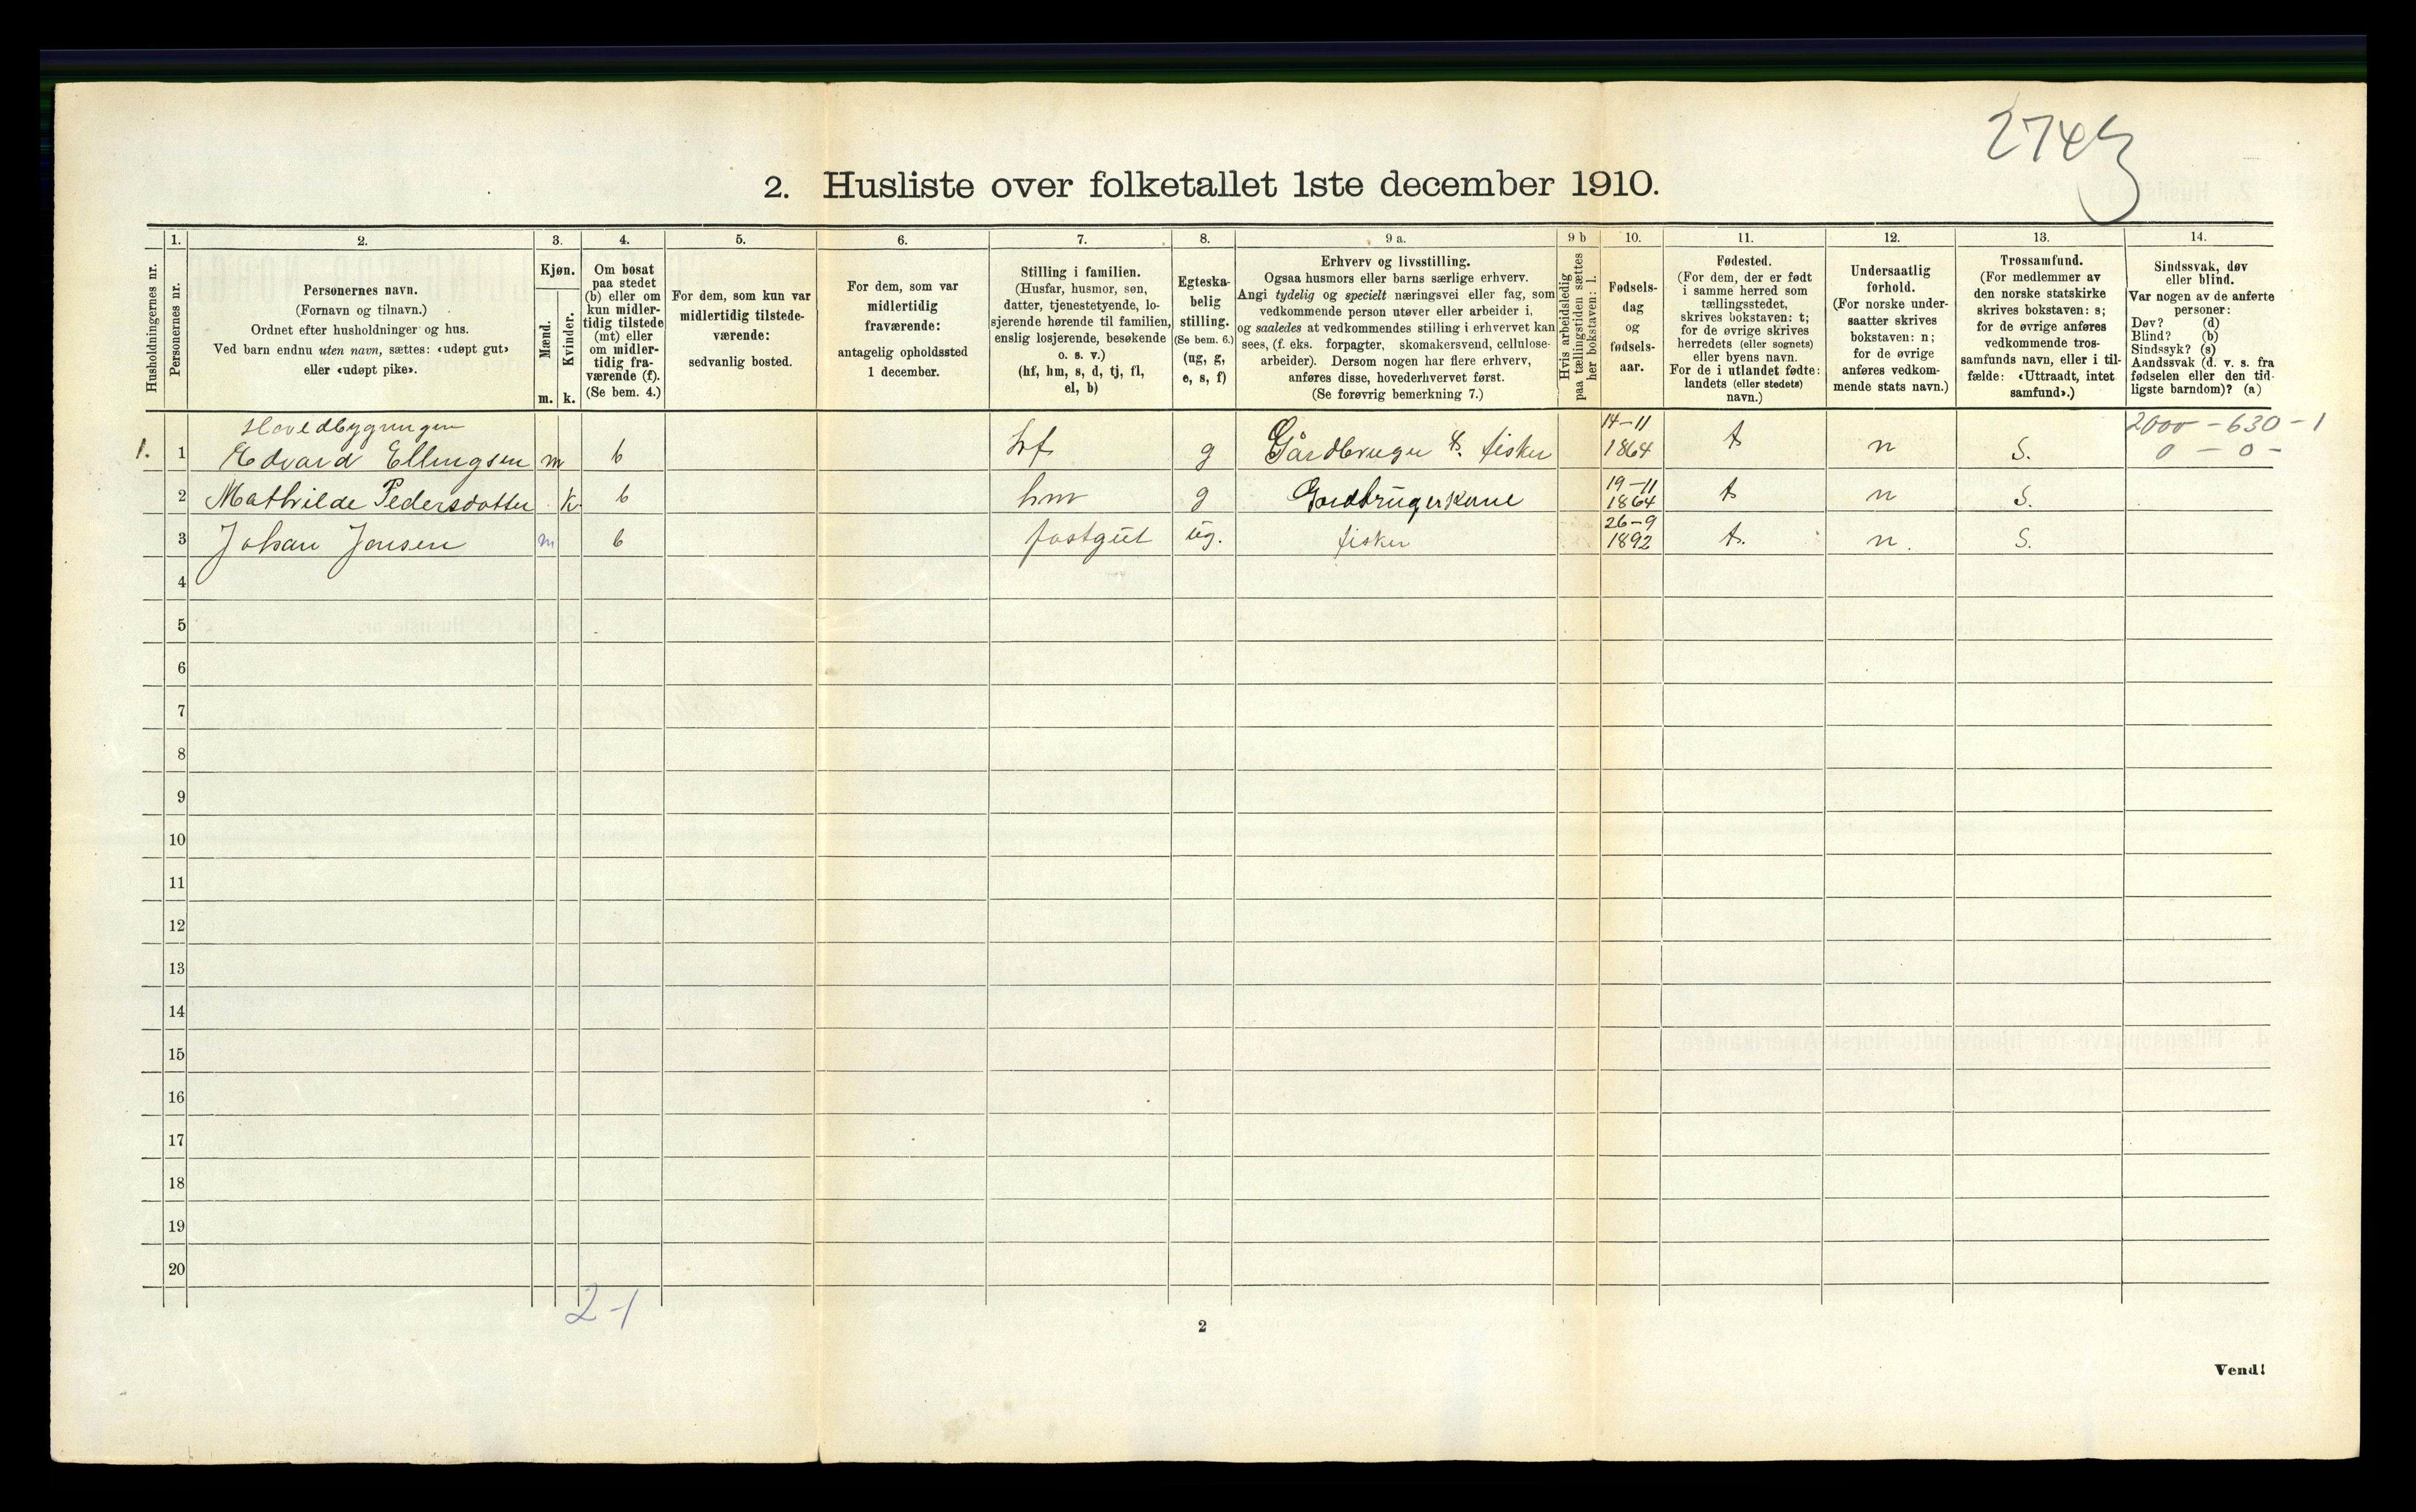 2743
2. Husliste over folketallet 1ste december 1910.
Husholdningernes nr.
1.
Personernes nr.
2.
Personernes navn.
(Fornavn og tilnavn.)
Ordnet efter husholdninger og hus.
Ved barn endnu uten navn, sættes: «udøpt gut»
eller «udøpt pike».
3.
Kjøn.
Mænd.
Kvinder.
m. k.
4.
Om bosat
paa stedet
(b) eller om
kun midler-
tidig tilstede
(mt) eller
om midler-
tidig fra-
værende (f).
(Se bem. 4.)
5.
For dem, som kun var
midlertidig tilstede-
værende:
sedvanlig bosted.
6.
For dem, som var
midlertidig
fraværende:
antagelig opholdssted
1 december.
7.
Stilling i familien.
(Husfar, husmor, søn,
datter, tjenestetyende, lo-
sjerende hørende til familien,
enslig losjerende, besøkende
o. s. v.)
(hf, hm, s, d, tj, fl,
el, b)
8.
Egteska-
belig
stilling.
(Se bem. 6.)
(ug, g,
e, s, f)
9 a.
Erhverv og livsstilling.
Ogsaa husmors eller barns særlige erhverv.
Angi tydelig og specielt næringsvei eller fag, som
vedkommende person utøver eller arbeider i,
og saaledes at vedkommendes stilling i erhvervet kan
sees, (f. eks. forpagter, skomakersvend, cellulose-
arbeider). Dersom nogen har flere erhverv,
anføres disse, hovederhvervet først.
(Se forøvrig bemerkning 7.)
9 b
Hvis arbeidsledig
paa tællingstiden sættes
her bokstaven: l.
10.
Fødsels-
dag
og
fødsels-
aar.
11.
Fødested.
(For dem, der er født
i samme herred som
tællingsstedet,
skrives bokstaven: t;
for de øvrige skrives
herredets (eller sognets)
eller byens navn.
For de i utlandet fødte:
landets (eller stedets)
navn.)
12.
Undersaatlig
forhold.
(For norske under-
saatter skrives
bokstaven: n;
for de øvrige
anføres vedkom-
mende stats navn.)
13.
Trossamfund.
(For medlemmer av
den norske statskirke
skrives bokstaven: s;
for de øvrige anføres
vedkommende tros-
samfunds navn, eller i til-
fælde: «Uttraadt, intet
samfund».)
14.
Sindssvak, døv
eller blind.
Var nogen av de anførte
personer:
Døv? (d)
Blind? (b)
Sindssyk? (s)
Aandssvak (d. v. s. fra
fødselen eller den tid-
ligste barndom)? (a)
Hovedbygningen 14-11 2000-630-1
1. 1 Edvard Ellingsen m b hf g Gårdbruger & fisker 1864 t n S. 0 - 0 -
19-11
2 Mathilde Pedersdotter k b hm g Gardbrugerkone 1864 t n S.
26-9
3 Johan Jensen m b fostgut ug. fisker 1892 t. n. S.
4
5
6
7
8
9
10
11
12
13
14
15
16
17
18
19
20
2-1
2
Vend!